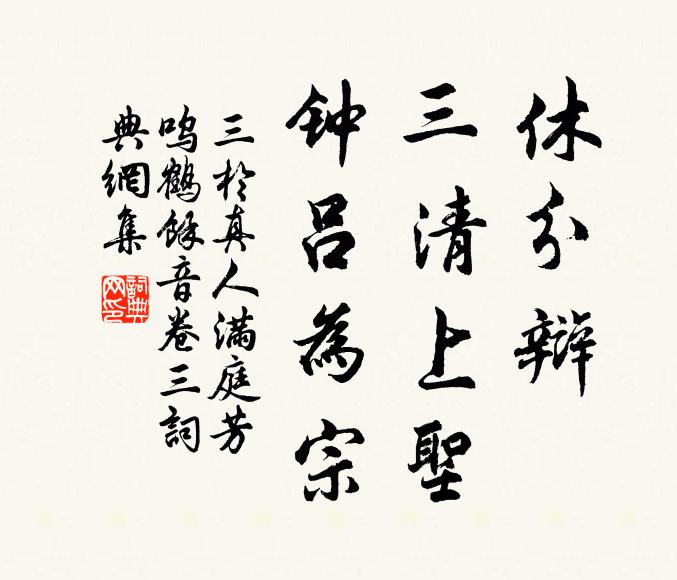 休分辯
三清上聖
钟吕為宗
三於真人滿庭芳
鸣鶴餘音卷三詞
典網集
詞典網印